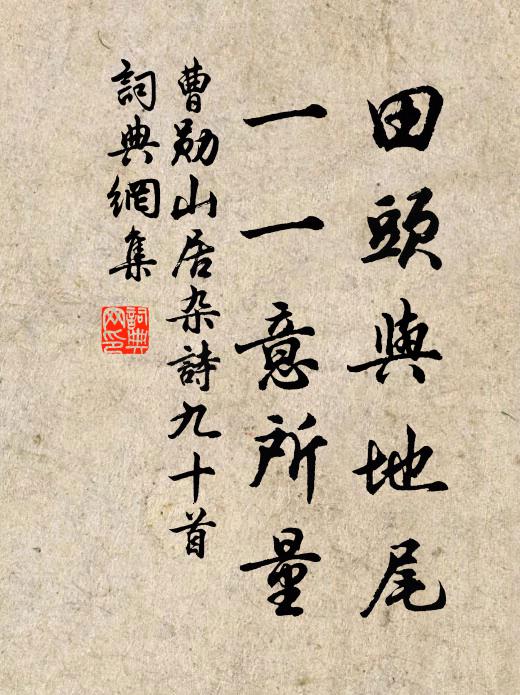 田頭與地尾
一一意所量
曹勋山居杂詩九十首
詞典網集
詞典
网印